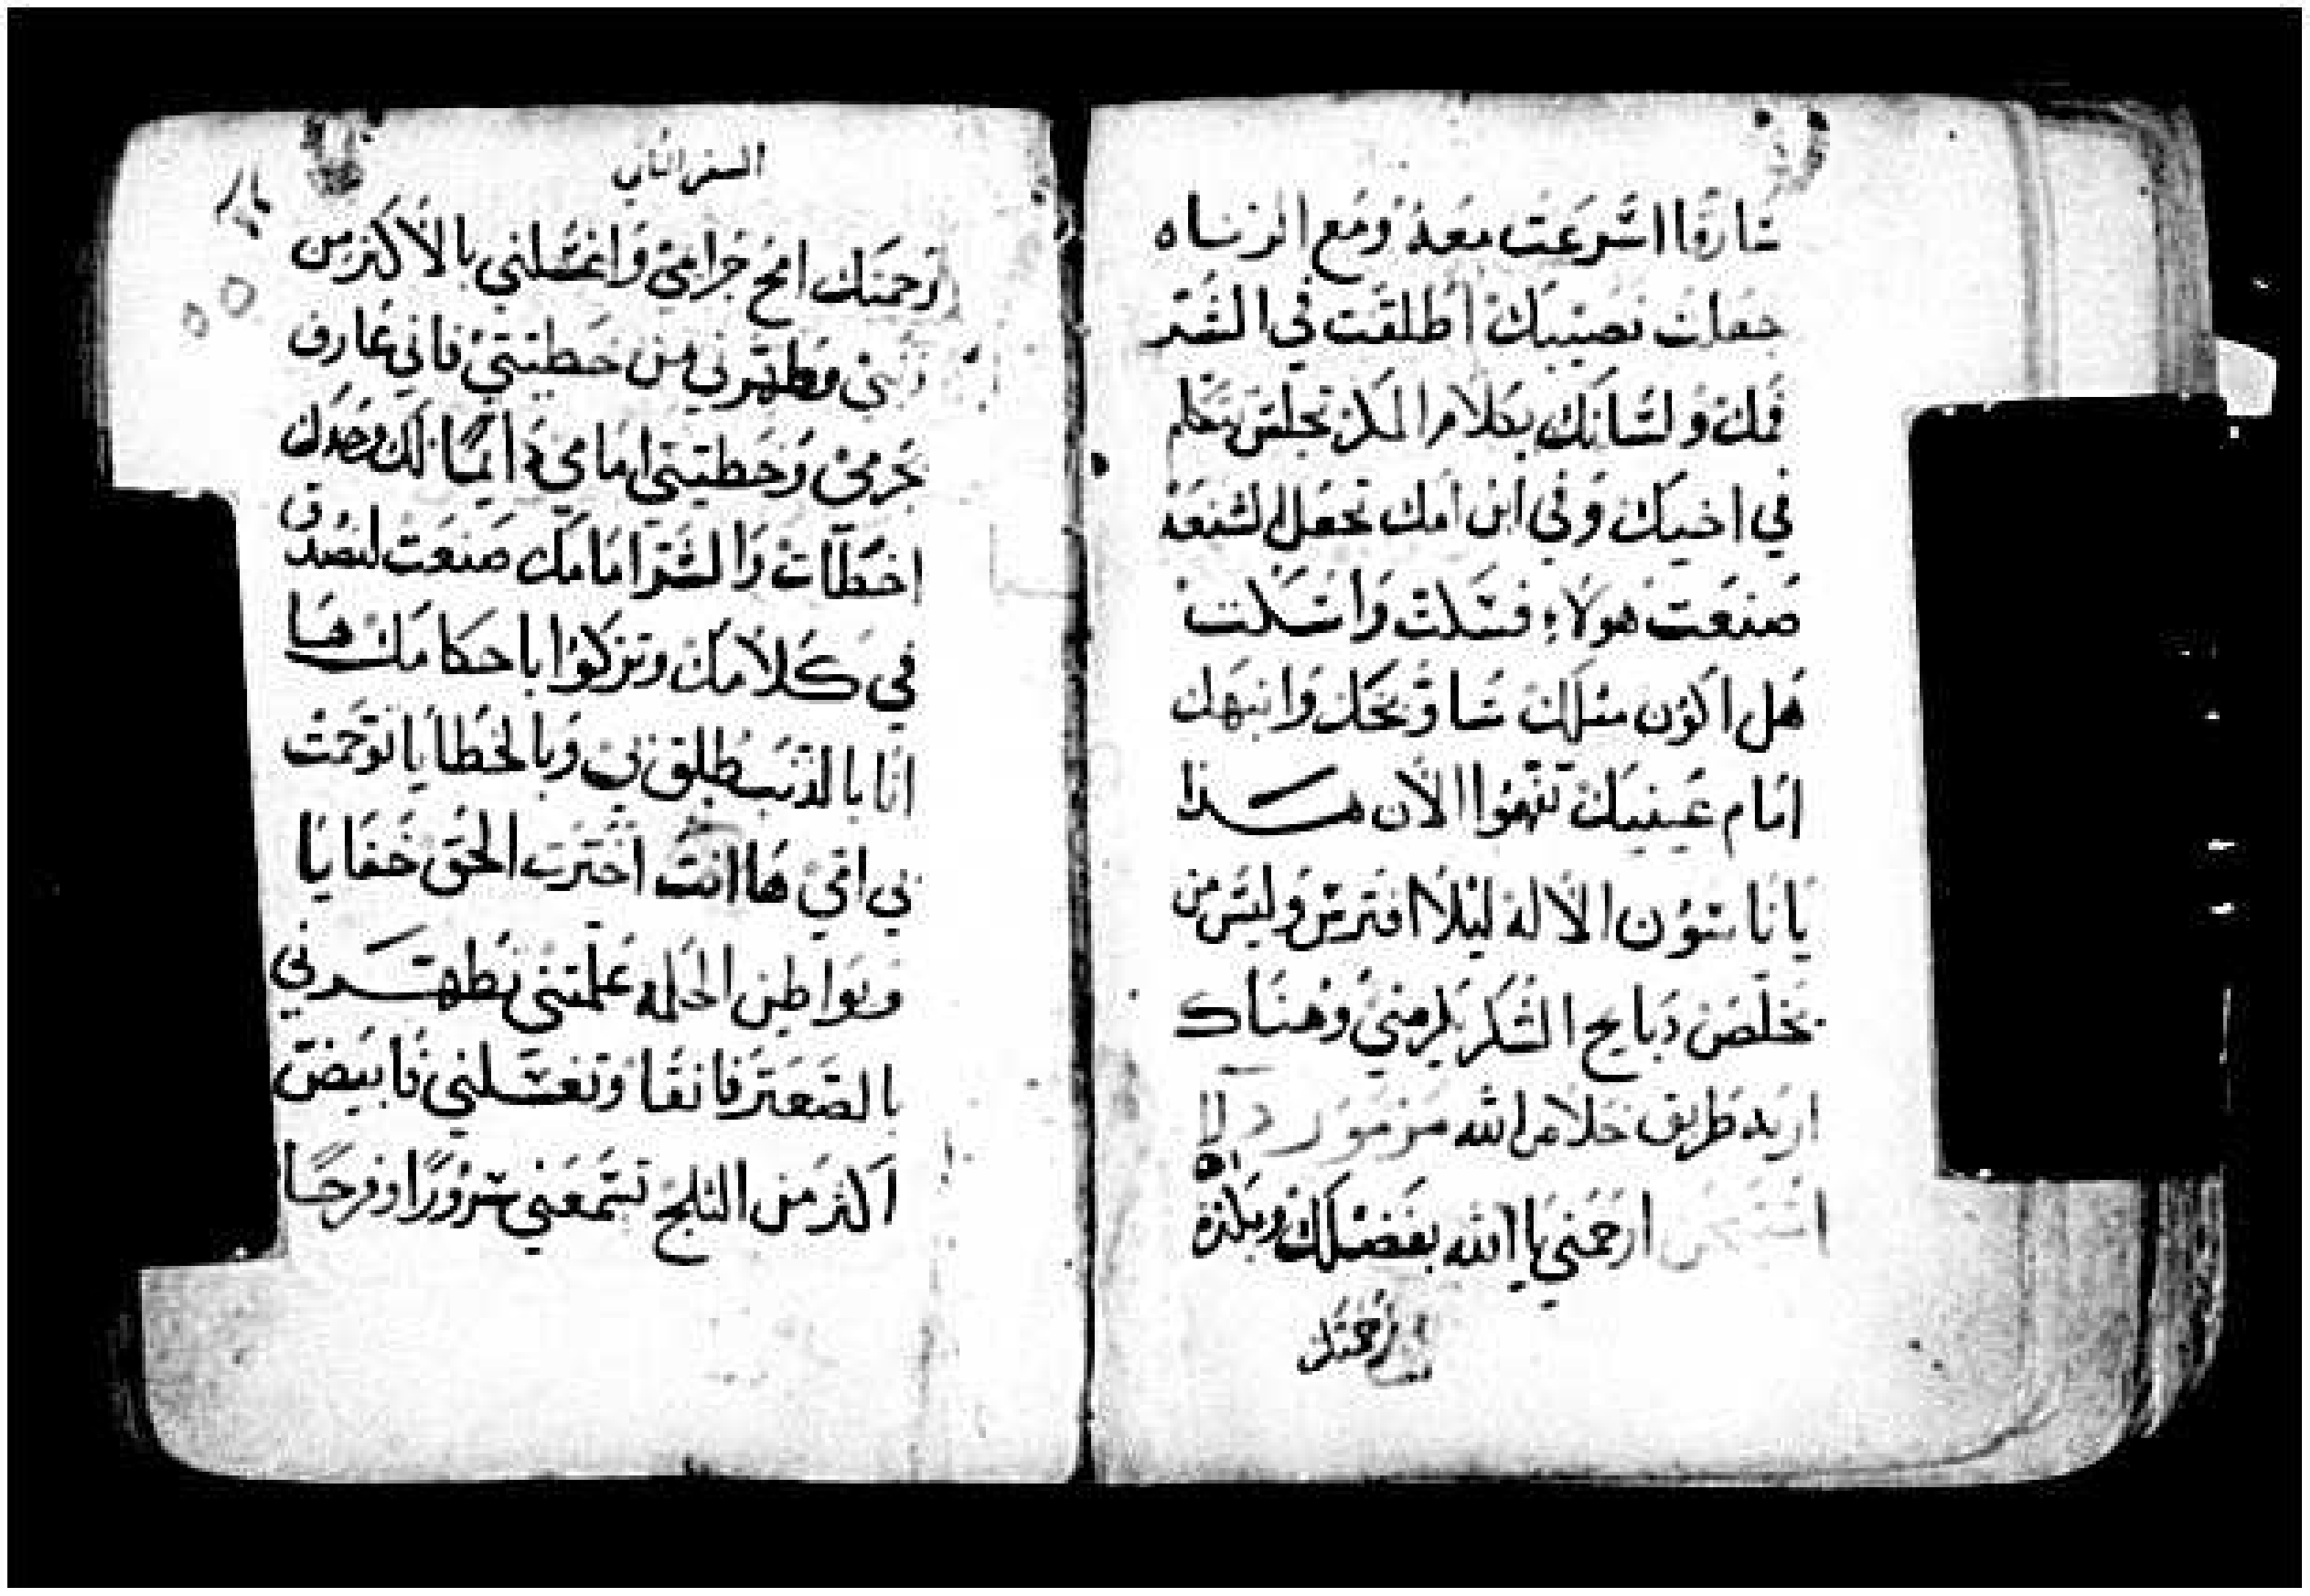 سارقا اسرعت معه ومع الزناه
جعلت نصيبك اطلقت في الشر
فمك ولسانك بكلام المكر تجلس تتكلم
في اخيك وفي ابن امك تجعل الشنعه
صنعت هولاء فسكت واسكت
هل اكون مثلك سا وبخك وانبهك
امام عينيك تفهموا الان هذا
يا ناسيون الاله ليلا افترس وليس من
يخلص دبايح الشكر يكرمني وهناك
اريه طريق خلاص الله مزمور
ارحمني يا الله بفضلك وبكثرة
رحمتك
السفر الثاني
رحمتك امح جرايمي واغسلني بالاكثر من
ذنبي وطهرني من خطيتي فاني عارف
بجرمي وخطيتي امامي دايما لك وحدك
اخطات والشر امامك صنعت لتصدق
في كلامك وتزكوا باحكامك ها
انا بالذنب طلق بي وبالخطايا توحمت
بي امي ها انت اخترت الحق خفايا
وبواطن الحكمه علمتني تطهرني
بالصعتر فانقا وتغسلني فابيض
اكثر من الثلج تسمعني سرورا وفرحا